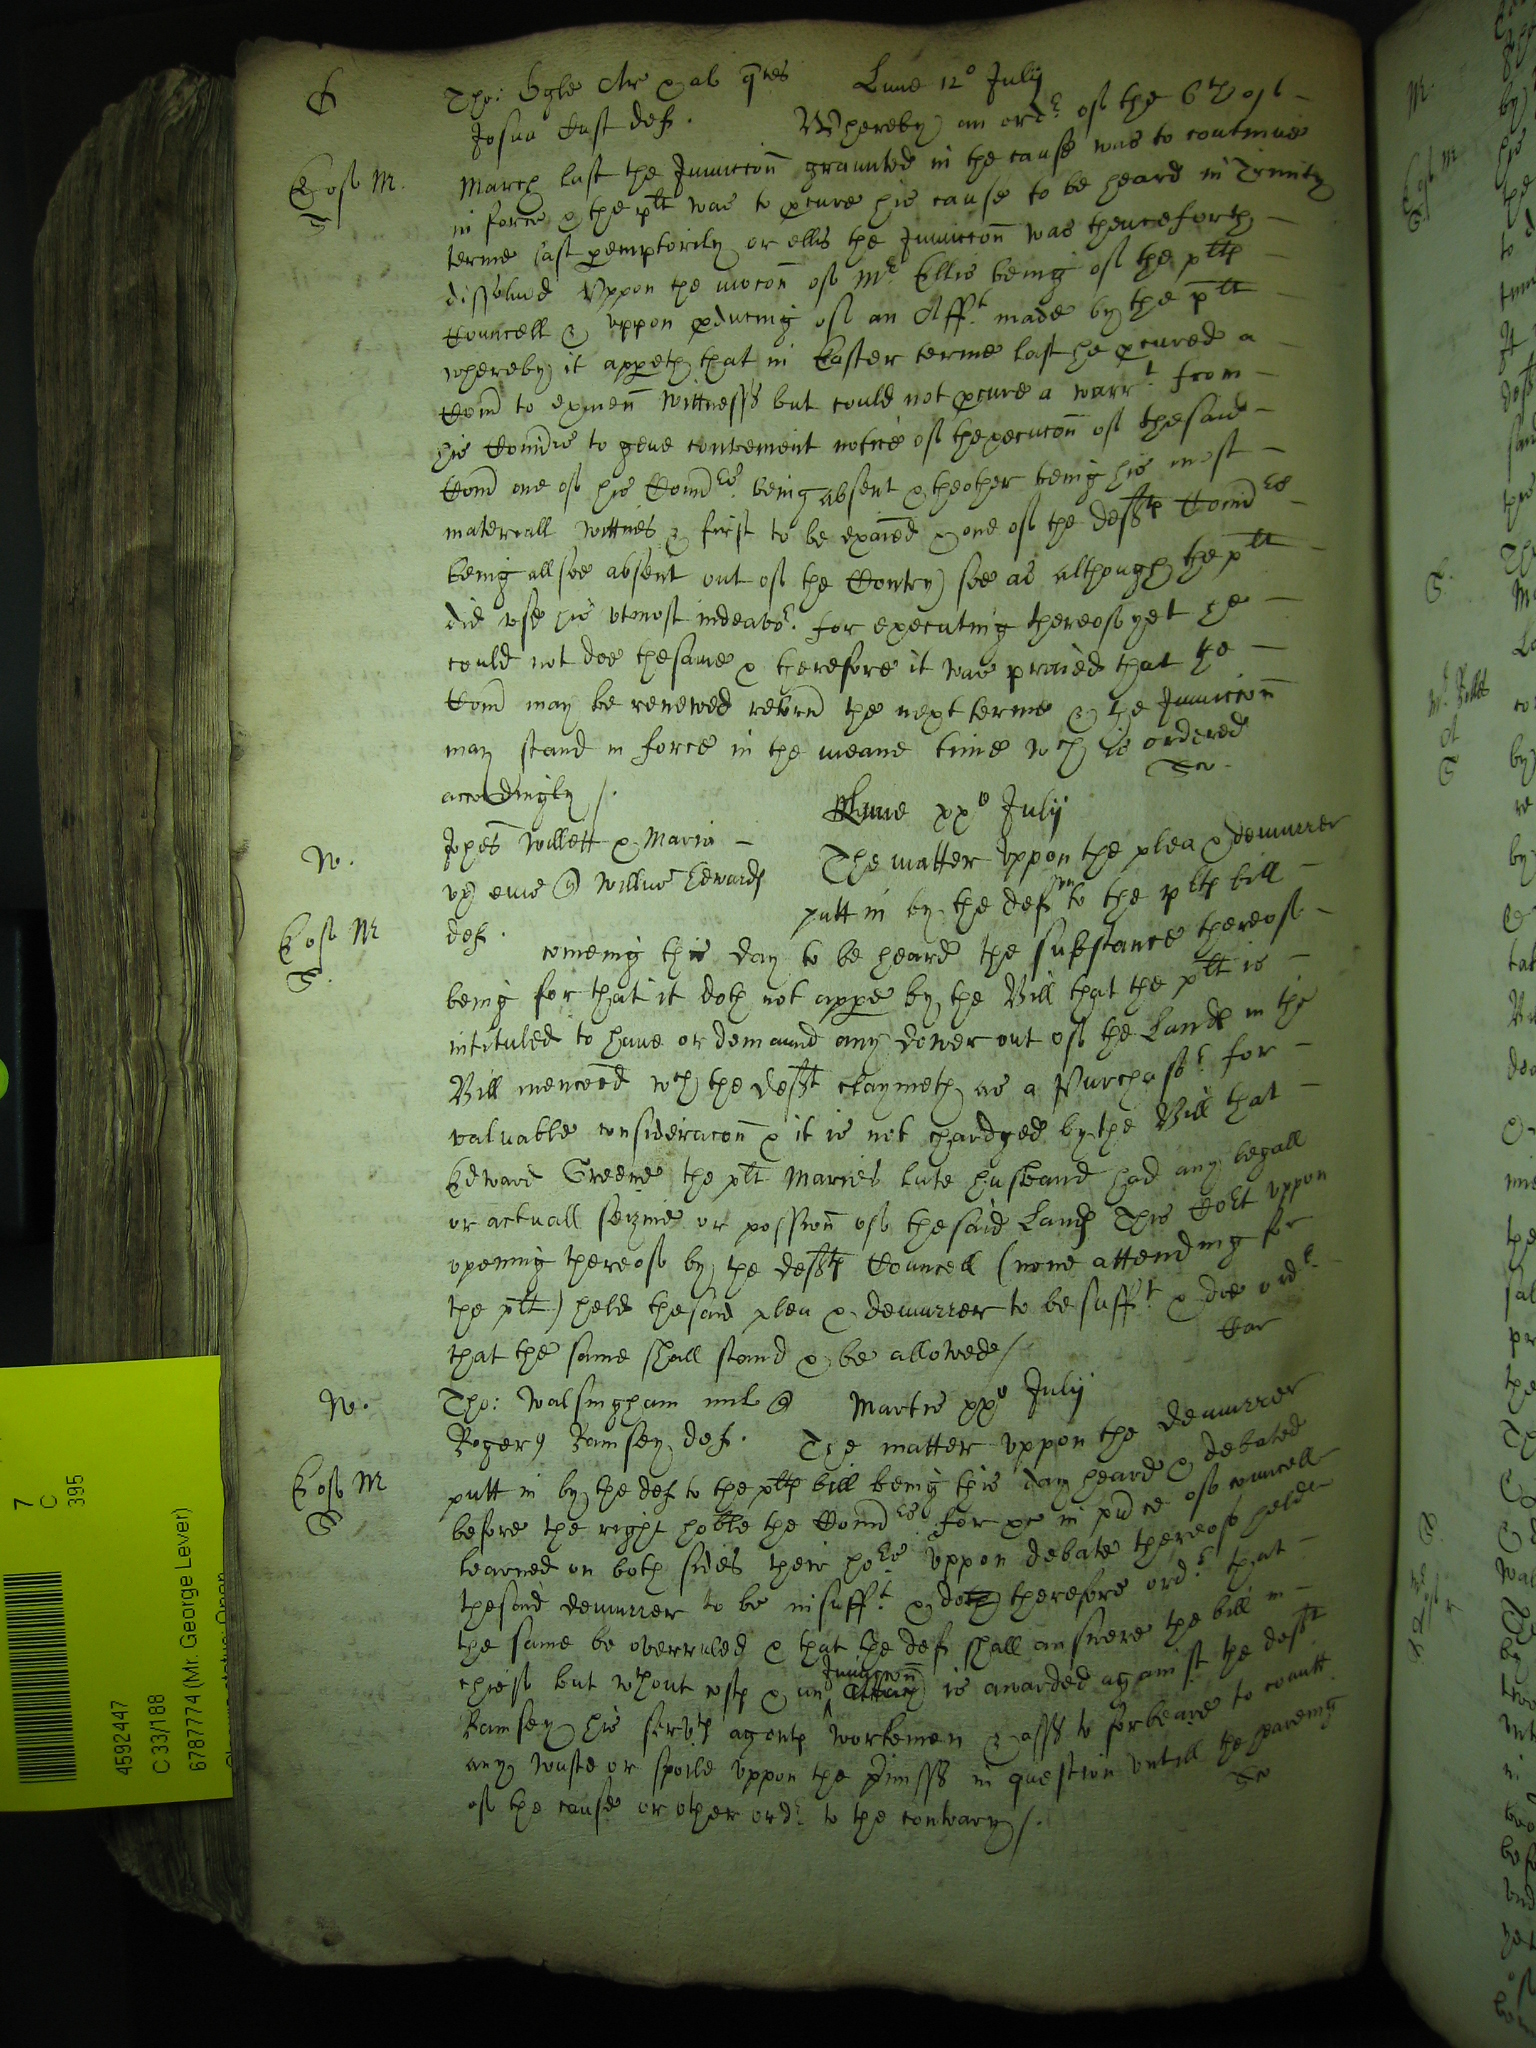 Tho: Ogle Ar & al qtes Lune 12o July
Josua East def. Whereby an ordr of the 6th of
March last the Iniuccon graunted in the cause was to continue
in force & the plt was to pcure his cause to be heard in Trinity
terme last pemptorily or ells the Iniuccon was thenceforth
dissolued Vppon the mocon of Mr Ellis being of the plts
Councell & vppon pducing of an Afft made by the plt
whereby it appeth that in Easter terme last he pcured a
Comd to exmen Wittnesss but could not pcure a warrt from
his Comdrs to geue convenient notice of thexecucon of thesaid
Comd one of his Comdrs being absent & theother being his most
materiall wittnes & first to be exaied & one of the defts Comdrs
being allsoe absent out of the Contry) soe as although the plt
did vse his vtmost indeavor for executing thereof yet he
could not doe thesame & therefore it was praied that the
Comd may be renewed retorn the next terme & the Iniuccon
may stand in force in the meane time wch is ordered
accordingly /.
Johes Willett & Maria Lune xxo July
vx eius Willms Edwards The matter vppon the plea & demurrer
def. putt in by the def to the plts bill
comeing this day to be heard the substance thereof
being for that it doth not appe by the Bill that the plt is
intituled to haue or demaund any dower out of the Lands in the
Bill menconed wch the deft claymeth as a Purchasr for
valuable consideracon & it is not chardged by the Bill that
Edward Greene the plt Maries late husband had any legall
or actuall seizine or possion of thesaid Lands This Cort vppon
opening thereof by the defts Councell (none attending for
the plt) held thesaid plea & demurrer to be sufft & doe ordr
that the same shall stand & be allowed /
Tho: Walsingham mil Martis xxo July
Rogers Ramsey def. The matter vppon the demurrer
putt in by the def to the plts bill being this day heard & debated
before the right hoble the Comdrs for &c in pnce of councell
learned on both sides their hors vppon debate thereof held
thesaid demurrer to be insufft & doth therefore ordr that
the same be overruled & that the def shall answere the bill in
chief but wthout costs & an Iniuccon is awarded against the deft
Ramsey his servts agents workemen & asss to forbeare to comitt
any waste or spoile vppon the pmisss in question vntill the hearing
of the cause or other ordr to the contrary /.
W.
W.
7
C
395
4592447
C 33/188
6787774 (Mr. George Lever)